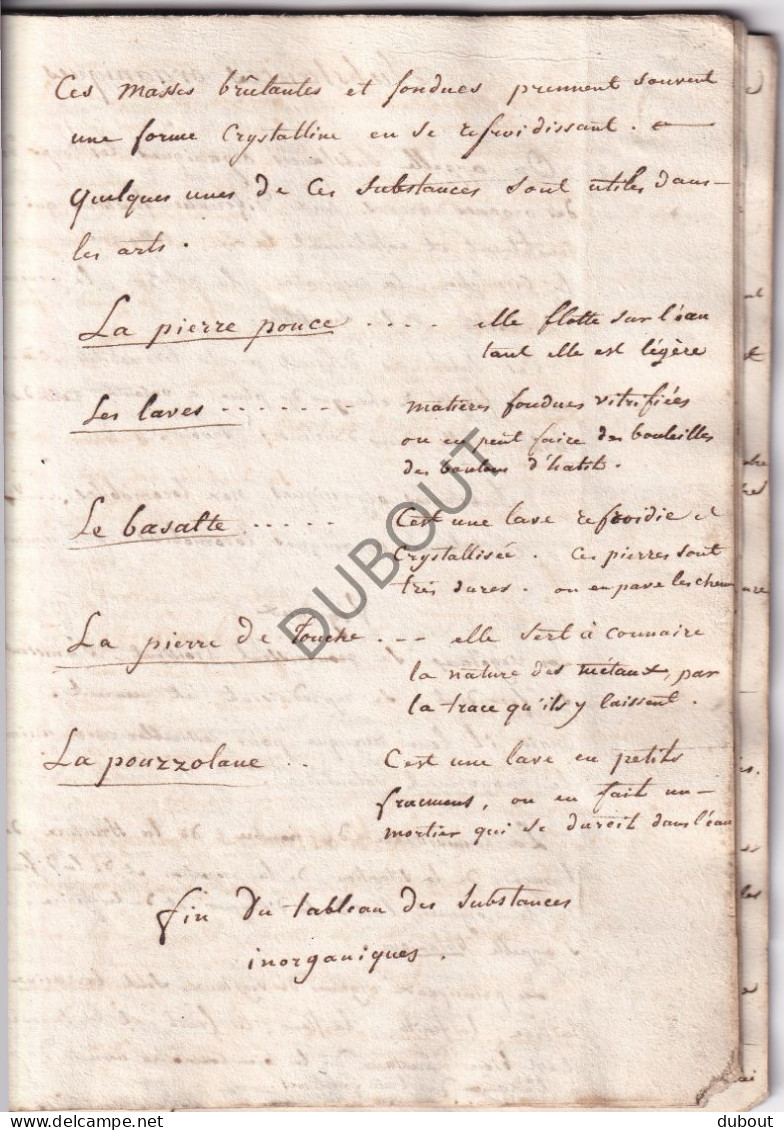 Ces masses brûlantes et fondues prennent souvent
une forme Crystalline en se refroidissant.
Quelques unes de Ces substances sont utiles dans
les arts.
La pierre ponce .... elle flotte sur l'eau
tant elle est légère
Les laves ....... matières fondues vitrifiées
on en peut faire des bouteilles
des boutons d'habits.
Le basalte ..... C'est une lave refroidie et
Crystallisée. Ces pierres sont
très dures. on en pave les chem
La pierre de Touche. -- elle sert à connaire
la nature des métaux, par
la trace qu'ils y laissent.
La pouzzolane .. C'est une lave en petits
fracmens, on en fait un
mortier qui se durcit dans l'eau
fin du tableau des substances
inorganiques.
DUBOUT
delcampe.net
dubout